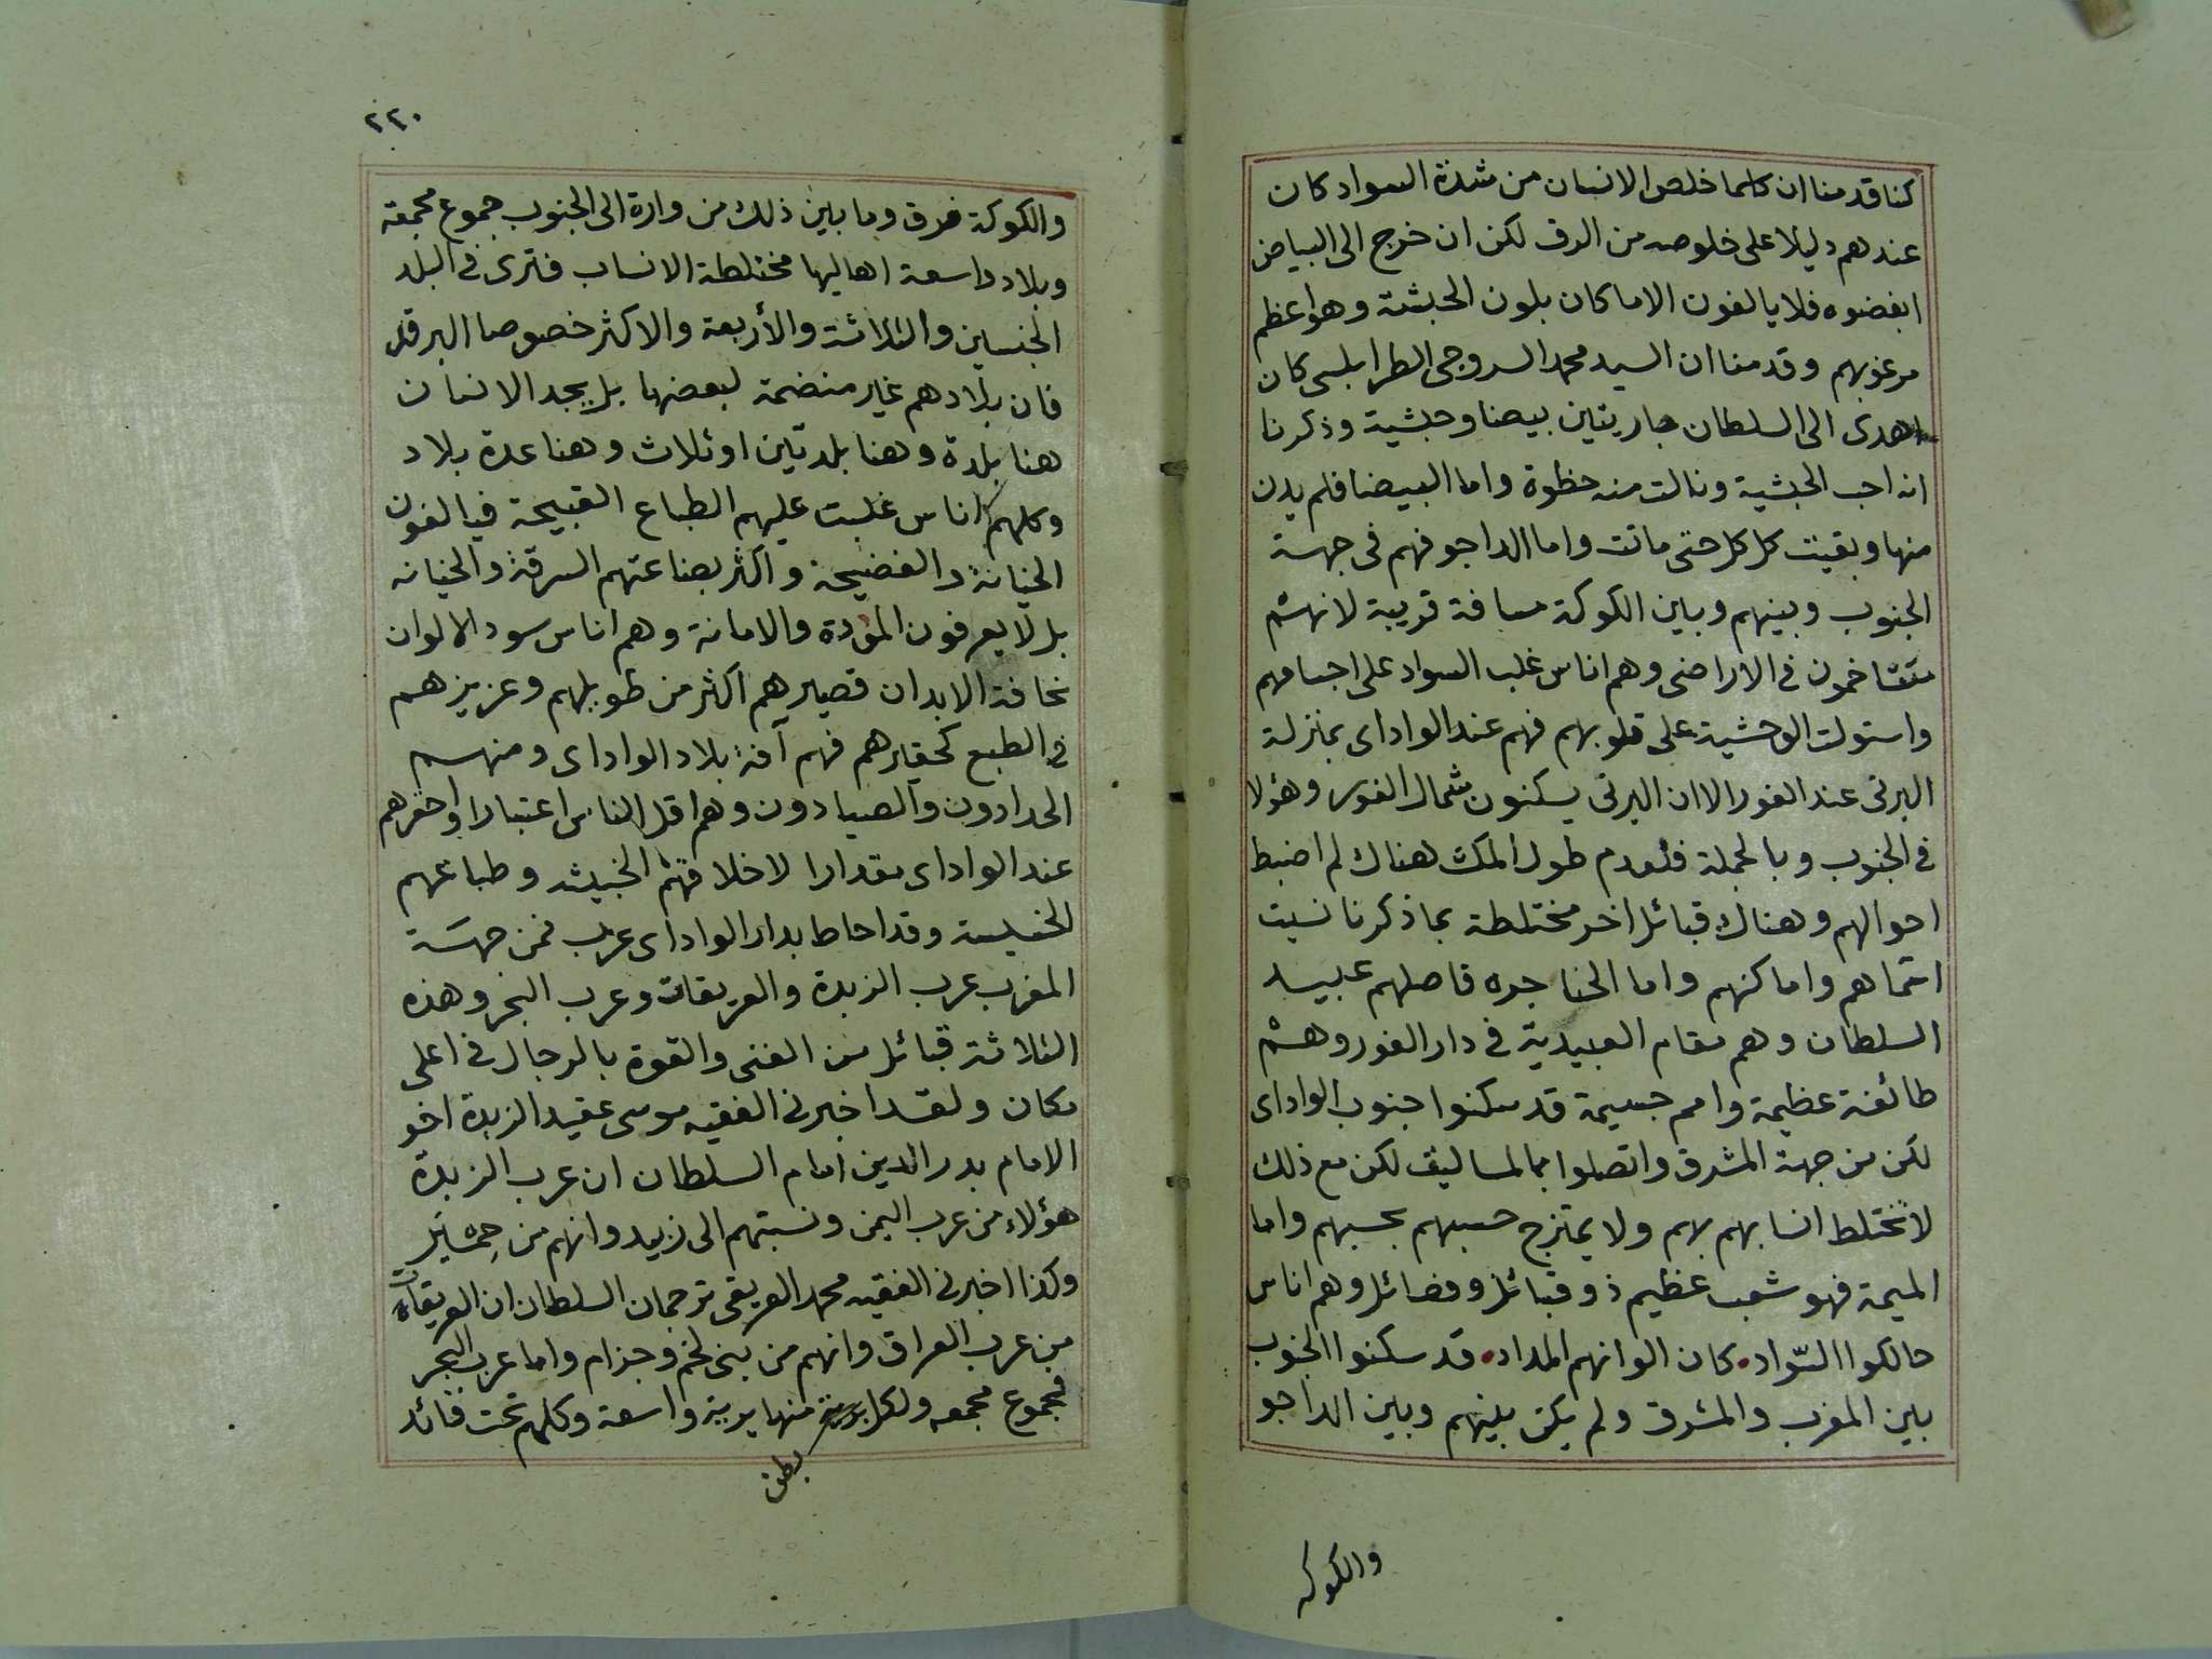 كنا قدمنا ان كلما خلص الانسان من شدة السواد كان
عندهم دليلا على خلوصه من الرق لكن ان خرج الى البياض
ابغضوه فلا يالفون الا ما كان بلون الحبشة وهو اعظم
مرغوبهم وقدمنا ان السيد محمد السروجى الطرابلسى كان
اهدى الى السلطان جاريتين بيضا وحبشية وذكرنا
انه احب الحبشية ونالت منه حظوة واما البيضا فلم يدن
منها وبقيت كل كل حتى ماتت واما الداجو فهم فى جهة
الجنوب وبينهم وبين الكوكة مسافة قريبة لانهم
متتاخمون فى الاراضى وهم اناس غلب السواد على اجسامهم
واستولت الوحشية على قلوبهم فهم عند الواداى بمنزلة
البرتى عند الفور الا ان البرتى يسكنون شمال الفور وهؤلا
فى الجنوب وبالجملة فلعدم طول المكث هناك لم اضبط
احوالهم وهناك قبائل اخر مختلطة بما ذكرنا نسيت
اسماهم واماكنهم واما الخناجره فاصلهم عبيد
السلطان وهم مقام العبيدية فى دار الفور وهم
طائفة عظيمة وامم جسيمة قد سكنوا جنوب الواداى
لكن من جهة المشرق واتصلوا بالمساليف لكن مع ذلك
لا تختلط انسابهم بهم ولا يمتزج حسبهم بحسبهم واما
الميمة فهو شعب عظيم ذو قبائل وفصائل وهم اناس
حالكوا السّواد كان الوانهم المداد قد سكنوا الجنوب
بين المغرب والمشرق ولم يكن بينهم وبين الداجو
والكوكه
٢٢٠
والكوكة فرق وما بين ذلك من وارة الى الجنوب جموع مجمعة
وبلاد واسعة اهاليها مختلطة الانساب فترى فى البلد
الجنسين والثلاثة والأربعة والاكثر خصوصا البرقد
فان بلادهم غير منضمة لبعضها بل يجد الانسان
هنا بلدة وهنا بلدتين او ثلاث وهنا عدة بلاد
وكلهم اناس غلبت عليهم الطباع القبيحة فيالفون
الخيانة والفضيحة واكثر بضاعتهم السرقة والخيانه
بل لا يعرفون المؤدة والامانة وهم اناس سود الالوان
نحافة الابدان قصيرهم اكثر من طويلهم وعزيزهم
فى الطبع كحقيرهم فهم آفة بلاد الواداى ومنهم
الحدادون والصيادون وهم اقل الناس اعتبارا واحقرهم
عند الواداى مقدارا لاخلاقهم الخبيثه وطباعهم
الخسيسة وقد احاط بدار الواداى عرب فمن جهة
المغرب عرب الزبدة والعريقات وعرب البحر وهذه
الثلاثة قبائل من الغنى والقوة بالرجال فى اعلى
مكان ولقد اخبرنى الفقيه موسى عقيد الزبدة اخو
الامام بدر الدين امام السلطان ان عرب الزبدة
هؤلاء من عرب اليمن ونسبتهم الى زبيد وانهم من حِمْيَر
وكذا اخبرنى الفقيه محمد العريقى ترجمان السلطان ان العريقات
من عرب العراق وانهم من بنى لخم وجزام واما عرب البحر
فجموع مجمعه ولكل منها برية واسعة وكلهم تحت قائد
بطن